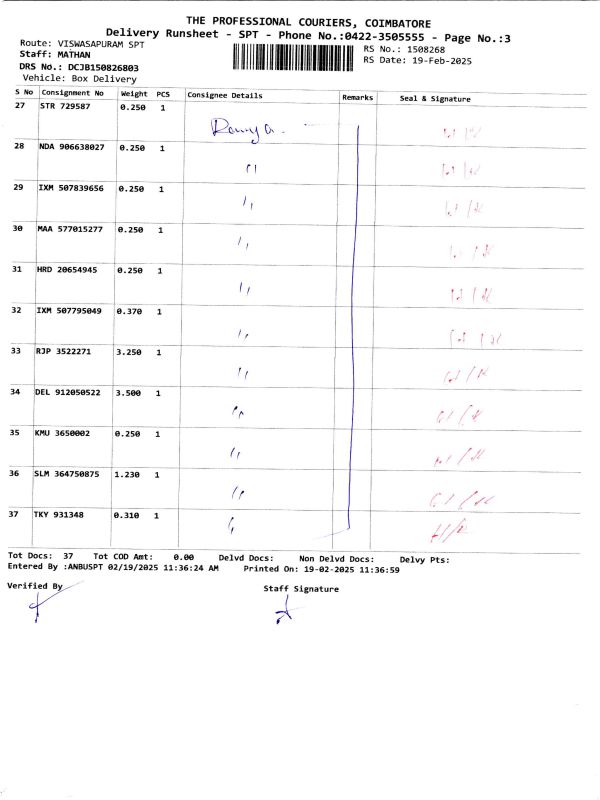 THE PROFESSIONAL COURIERS, COIMBATORE
Delivery Runsheet - SPT - Phone No.:0422-3505555 - Page No.:3
Route: VISWASAPURAM SPT
Staff: MATHAN
DRS No.: DCJB150826803
Vehicle: Box Delivery
RS No.: 1508268
RS Date: 19-Feb-2025
S No Consignment No Weight PCS Consignee Details Remarks Seal & Signature
27 STR 729587 0.250 1
28 NDA 906638027 0.250 1
29 IXM 507839656 0.250 1
30 MAA 577015277 0.250 1
31 HRD 20654945 0.250 1
32 IXM 507795049 0.370 1
33 RJP 3522271 3.250 1
34 DEL 912050522 3.500 1
35 KMU 3650002 0.250 1
36 SLM 364750875 1.230 1
37 TKY 931348 0.310 1
Tot Docs: 37 Tot COD Amt: 0.00 Delvd Docs: Non Delvd Docs: Delvy Pts:
Entered By :ANBUSPT 02/19/2025 11:36:24 AM Printed On: 19-02-2025 11:36:59
Verified By Staff Signature